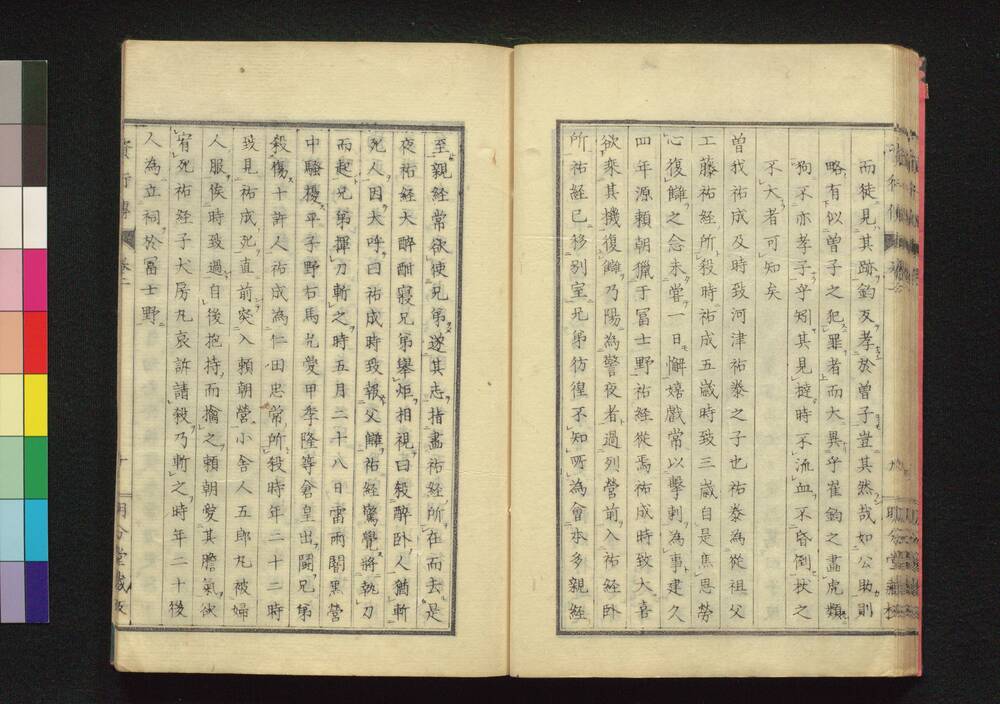 而徒見其跡鈞及孝於曽子豈其然哉如公助則
略有似曽子之犯罪者而大異乎崔鈞之畫虎類
狗不亦孝子乎矧其見撻時不流血不昏倒杖之
不大者可知矣
曽我祐成及時致河津祐泰之子也祐泰為從祖父
工藤祐経所殺時祐成五歳時致三歳自是焦思勞
心復讎之念未嘗一日懈嬉戲常以擊刺為事建久
四年源頼朝獵于冨士野祐経從焉祐成時致大喜
欲乘其機復讎乃陽為警夜者過列營前入祐経卧
所祐経已移別室兄弟彷徨不知所為會本多親経
至親経常欲使兄弟遂其志指畫祐経所在而去是
夜祐経大醉酣寝兄弟舉炬相視曰殺醉卧人猶斬
死人因大呼曰祐成時致報父讎祐経驚覺將執刀
而起兄弟揮刀斬之時五月二十八日雷雨闇黒營
中騒擾平子野右馬允愛甲季隆等倉皇出鬪兄弟
殺傷十許人祐成為仁田忠常所殺時年二十二時
致見祐成死直前突入頼朝營小舎人五郎丸被婦
人服俟時致過自後抱持而擒之頼朝愛其膽氣欲
宥死祐経子犬房丸哀訴請殺乃斬之時年二十後
人為立祠於冨士野